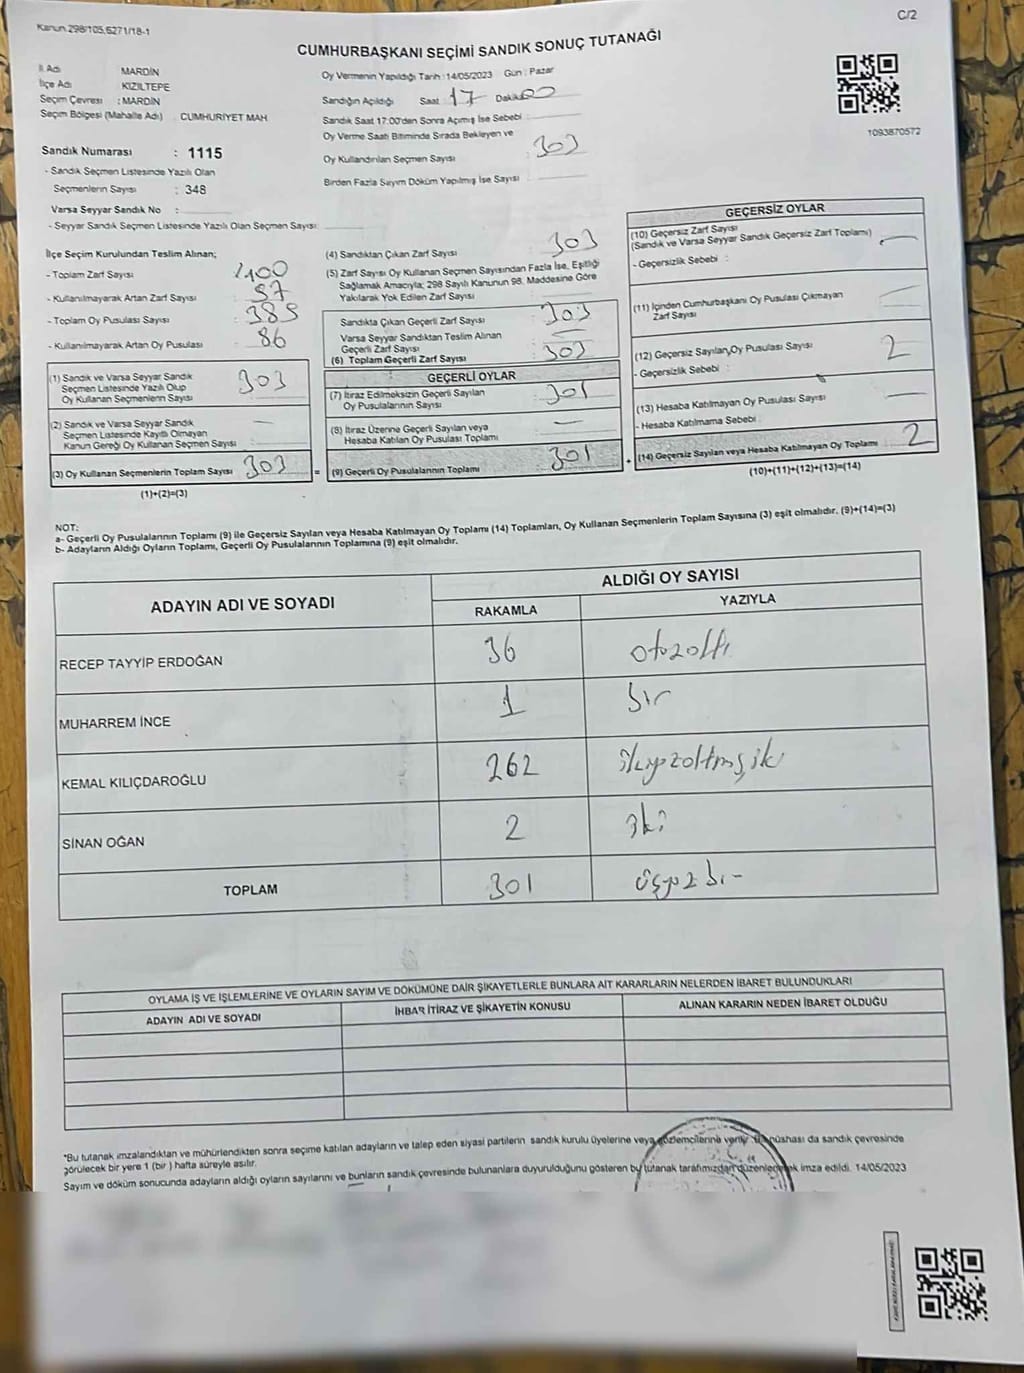 Kanun.298/105,6271/18-1
C/2
CUMHURBAŞKANI SEÇİMİ SANDIK SONUÇ TUTANAĞI
İl Adı MARDİN
İlçe Adı KIZILTEPE
Seçim Çevresi : MARDİN
Seçim Bölgesi (Mahalle Adı) CUMHURİYET MAH.
Sandık Numarası : 1115
- Sandık Seçmen Listesinde Yazılı Olan
Seçmenlerin Sayısı : 348
Varsa Seyyar Sandık No :
- Seyyar Sandık Seçmen Listesinde Yazılı Olan Seçmen Sayısı:
Oy Vermenin Yapıldığı Tarih :14/05/2023 Gün : Pazar
Sandığın Açıldığı Saat 17 Dakika 00
Sandık Saat 17:00'den Sonra Açımış İse Sebebi :
Oy Verme Saati Bitiminde Sırada Bekleyen ve
Oy Kullandırılan Seçmen Sayısı : 303
Birden Fazla Sayım Döküm Yapılmış İse Sayısı :
1093870572
İlçe Seçim Kurulundan Teslim Alınan;
- Toplam Zarf Sayısı : 400
- Kullanılmayarak Artan Zarf Sayısı : 97
- Toplam Oy Pusulası Sayısı : 389
- Kullanılmayarak Artan Oy Pusulası : 86
(1) Sandık ve Varsa Seyyar Sandık
Seçmen Listesinde Yazılı Olup
Oy Kullanan Seçmenlerin Sayısı : 303
(2) Sandık ve Varsa Seyyar Sandık
Seçmen Listesinde Kayıtlı Olmayan
Kanun Gereği Oy Kullanan Seçmen Sayısı : —
(3) Oy Kullanan Seçmenlerin Toplam Sayısı 303
(1)+(2)=(3)
(4) Sandıktan Çıkan Zarf Sayısı : 303
(5) Zarf Sayısı Oy Kullanan Seçmen Sayısından Fazla İse, Eşitliği
Sağlamak Amacıyla; 298 Sayılı Kanunun 98. Maddesine Göre
Yakılarak Yok Edilen Zarf Sayısı :
Sandıkta Çıkan Geçerli Zarf Sayısı : 303
Varsa Seyyar Sandıktan Teslim Alınan
Geçerli Zarf Sayısı : —
(6) Toplam Geçerli Zarf Sayısı : 303
GEÇERLİ OYLAR
(7) İtiraz Edilmeksizin Geçerli Sayılan
Oy Pusulalarının Sayısı : 301
(8) İtiraz Üzerine Geçerli Sayılan veya
Hesaba Katılan Oy Pusulası Toplamı : —
= (9) Geçerli Oy Pusulalarının Toplamı : 301
GEÇERSİZ OYLAR
(10) Geçersiz Zarf Sayısı
(Sandık ve Varsa Seyyar Sandık Geçersiz Zarf Toplamı) : —
- Geçersizlik Sebebi :
(11) İçinden Cumhurbaşkanı Oy Pusulası Çıkmayan
Zarf Sayısı : —
(12) Geçersiz Sayılan Oy Pusulası Sayısı : 2
- Geçersizlik Sebebi :
(13) Hesaba Katılmayan Oy Pusulası Sayısı : —
- Hesaba Katılmama Sebebi :
+ (14) Geçersiz Sayılan veya Hesaba Katılmayan Oy Toplamı : 2
(10)+(11)+(12)+(13)=(14)
NOT:
a- Geçerli Oy Pusulalarının Toplamı (9) ile Geçersiz Sayılan veya Hesaba Katılmayan Oy Toplamı (14) Toplamları, Oy Kullanan Seçmenlerin Toplam Sayısına (3) eşit olmalıdır. (9)+(14)=(3)
b- Adayların Aldığı Oyların Toplamı, Geçerli Oy Pusulalarının Toplamına (9) eşit olmalıdır.
ADAYIN ADI VE SOYADI
ALDIĞI OY SAYISI
RAKAMLA YAZIYLA
RECEP TAYYİP ERDOĞAN 36 otuzaltı
MUHARREM İNCE 1 bir
KEMAL KILIÇDAROĞLU 262 ikiyüzaltmışiki
SİNAN OĞAN 2 iki
TOPLAM 301 üçyüzbir
OYLAMA İŞ VE İŞLEMLERİNE VE OYLARIN SAYIM VE DÖKÜMÜNE DAİR ŞİKAYETLERLE BUNLARA AİT KARARLARIN NELERDEN İBARET BULUNDUKLARI
ADAYIN ADI VE SOYADI İHBAR İTİRAZ VE ŞİKAYETİN KONUSU ALINAN KARARIN NEDEN İBARET OLDUĞU
*Bu tutanak imzalandıktan ve mühürlendikten sonra seçime katılan adayların ve talep eden siyasi partilerin sandık kurulu üyelerine veya gözlemcilerine verilir. Bir nüshası da sandık çevresinde
görülecek bir yere 1 (bir ) hafta süreyle asılır.
Sayım ve döküm sonucunda adayların aldığı oyların sayılarını ve bunların sandık çevresinde bulunanlara duyurulduğunu gösteren bu tutanak tarafımızdan düzenlenerek imza edildi. 14/05/2023